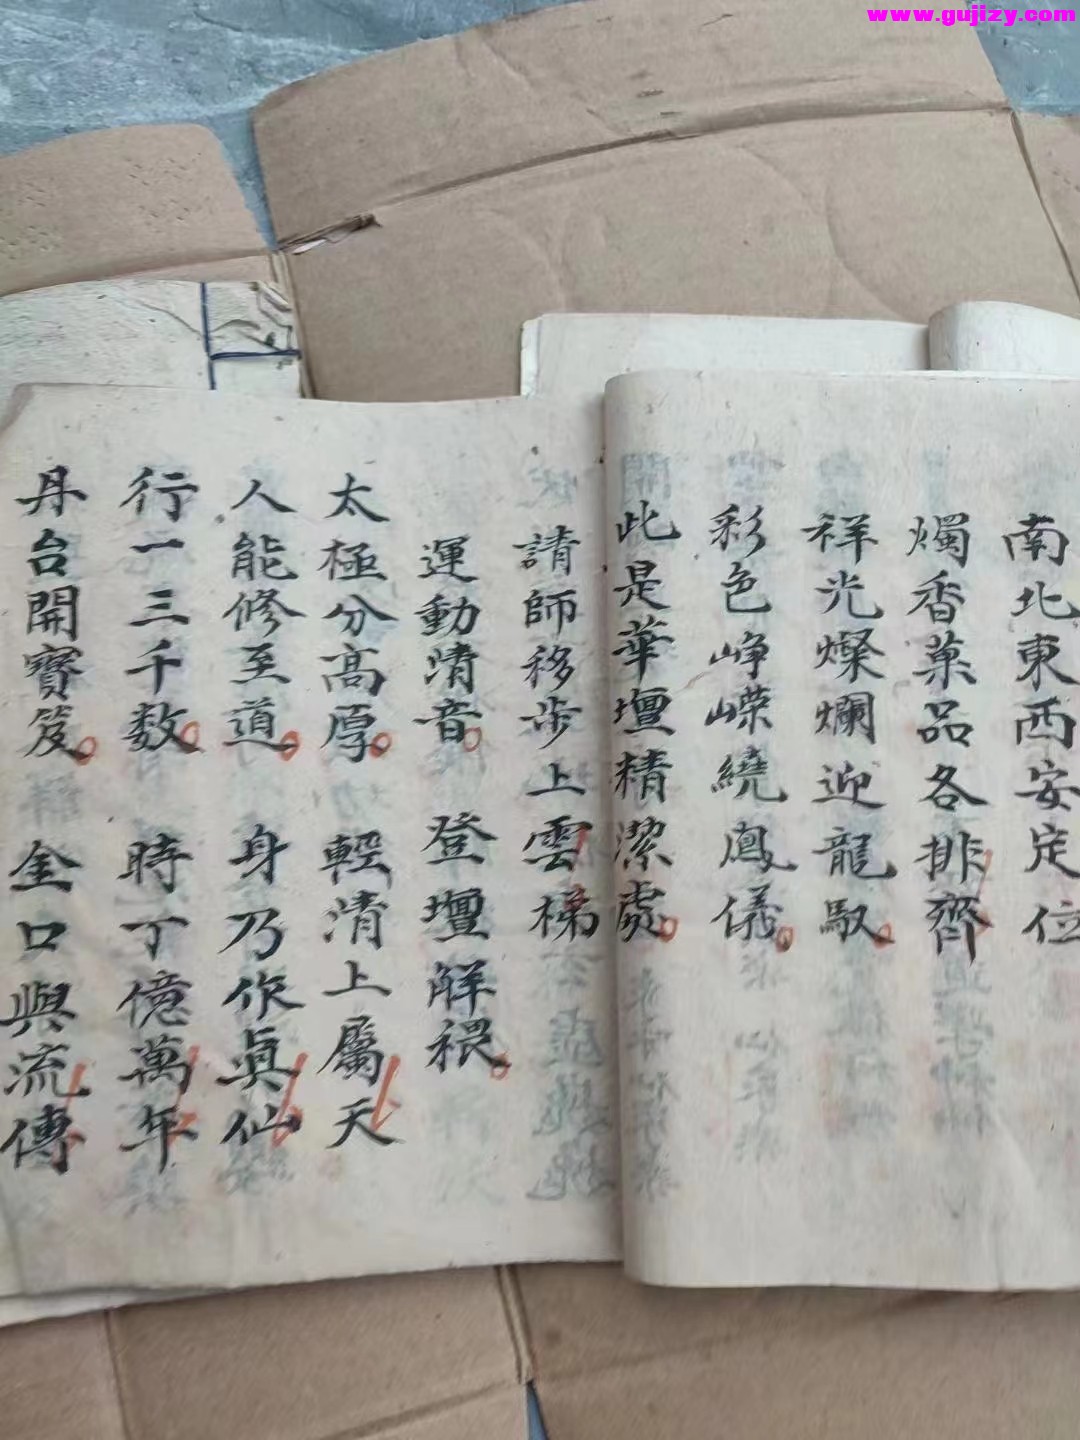 www.gujizy.com
南北東西安定位
燭香菓品各排齊
祥光燦爛迎龍馭
彩色崢嶸繞鳳儀
此是華壇精潔處
請師移步上雲梯
運動清音 登壇解穢
太極分高厚 輕清上屬天
人能修至道 身乃作眞仙
行一三千数 時丁億萬年
丹台開寶笈 金口與流傳